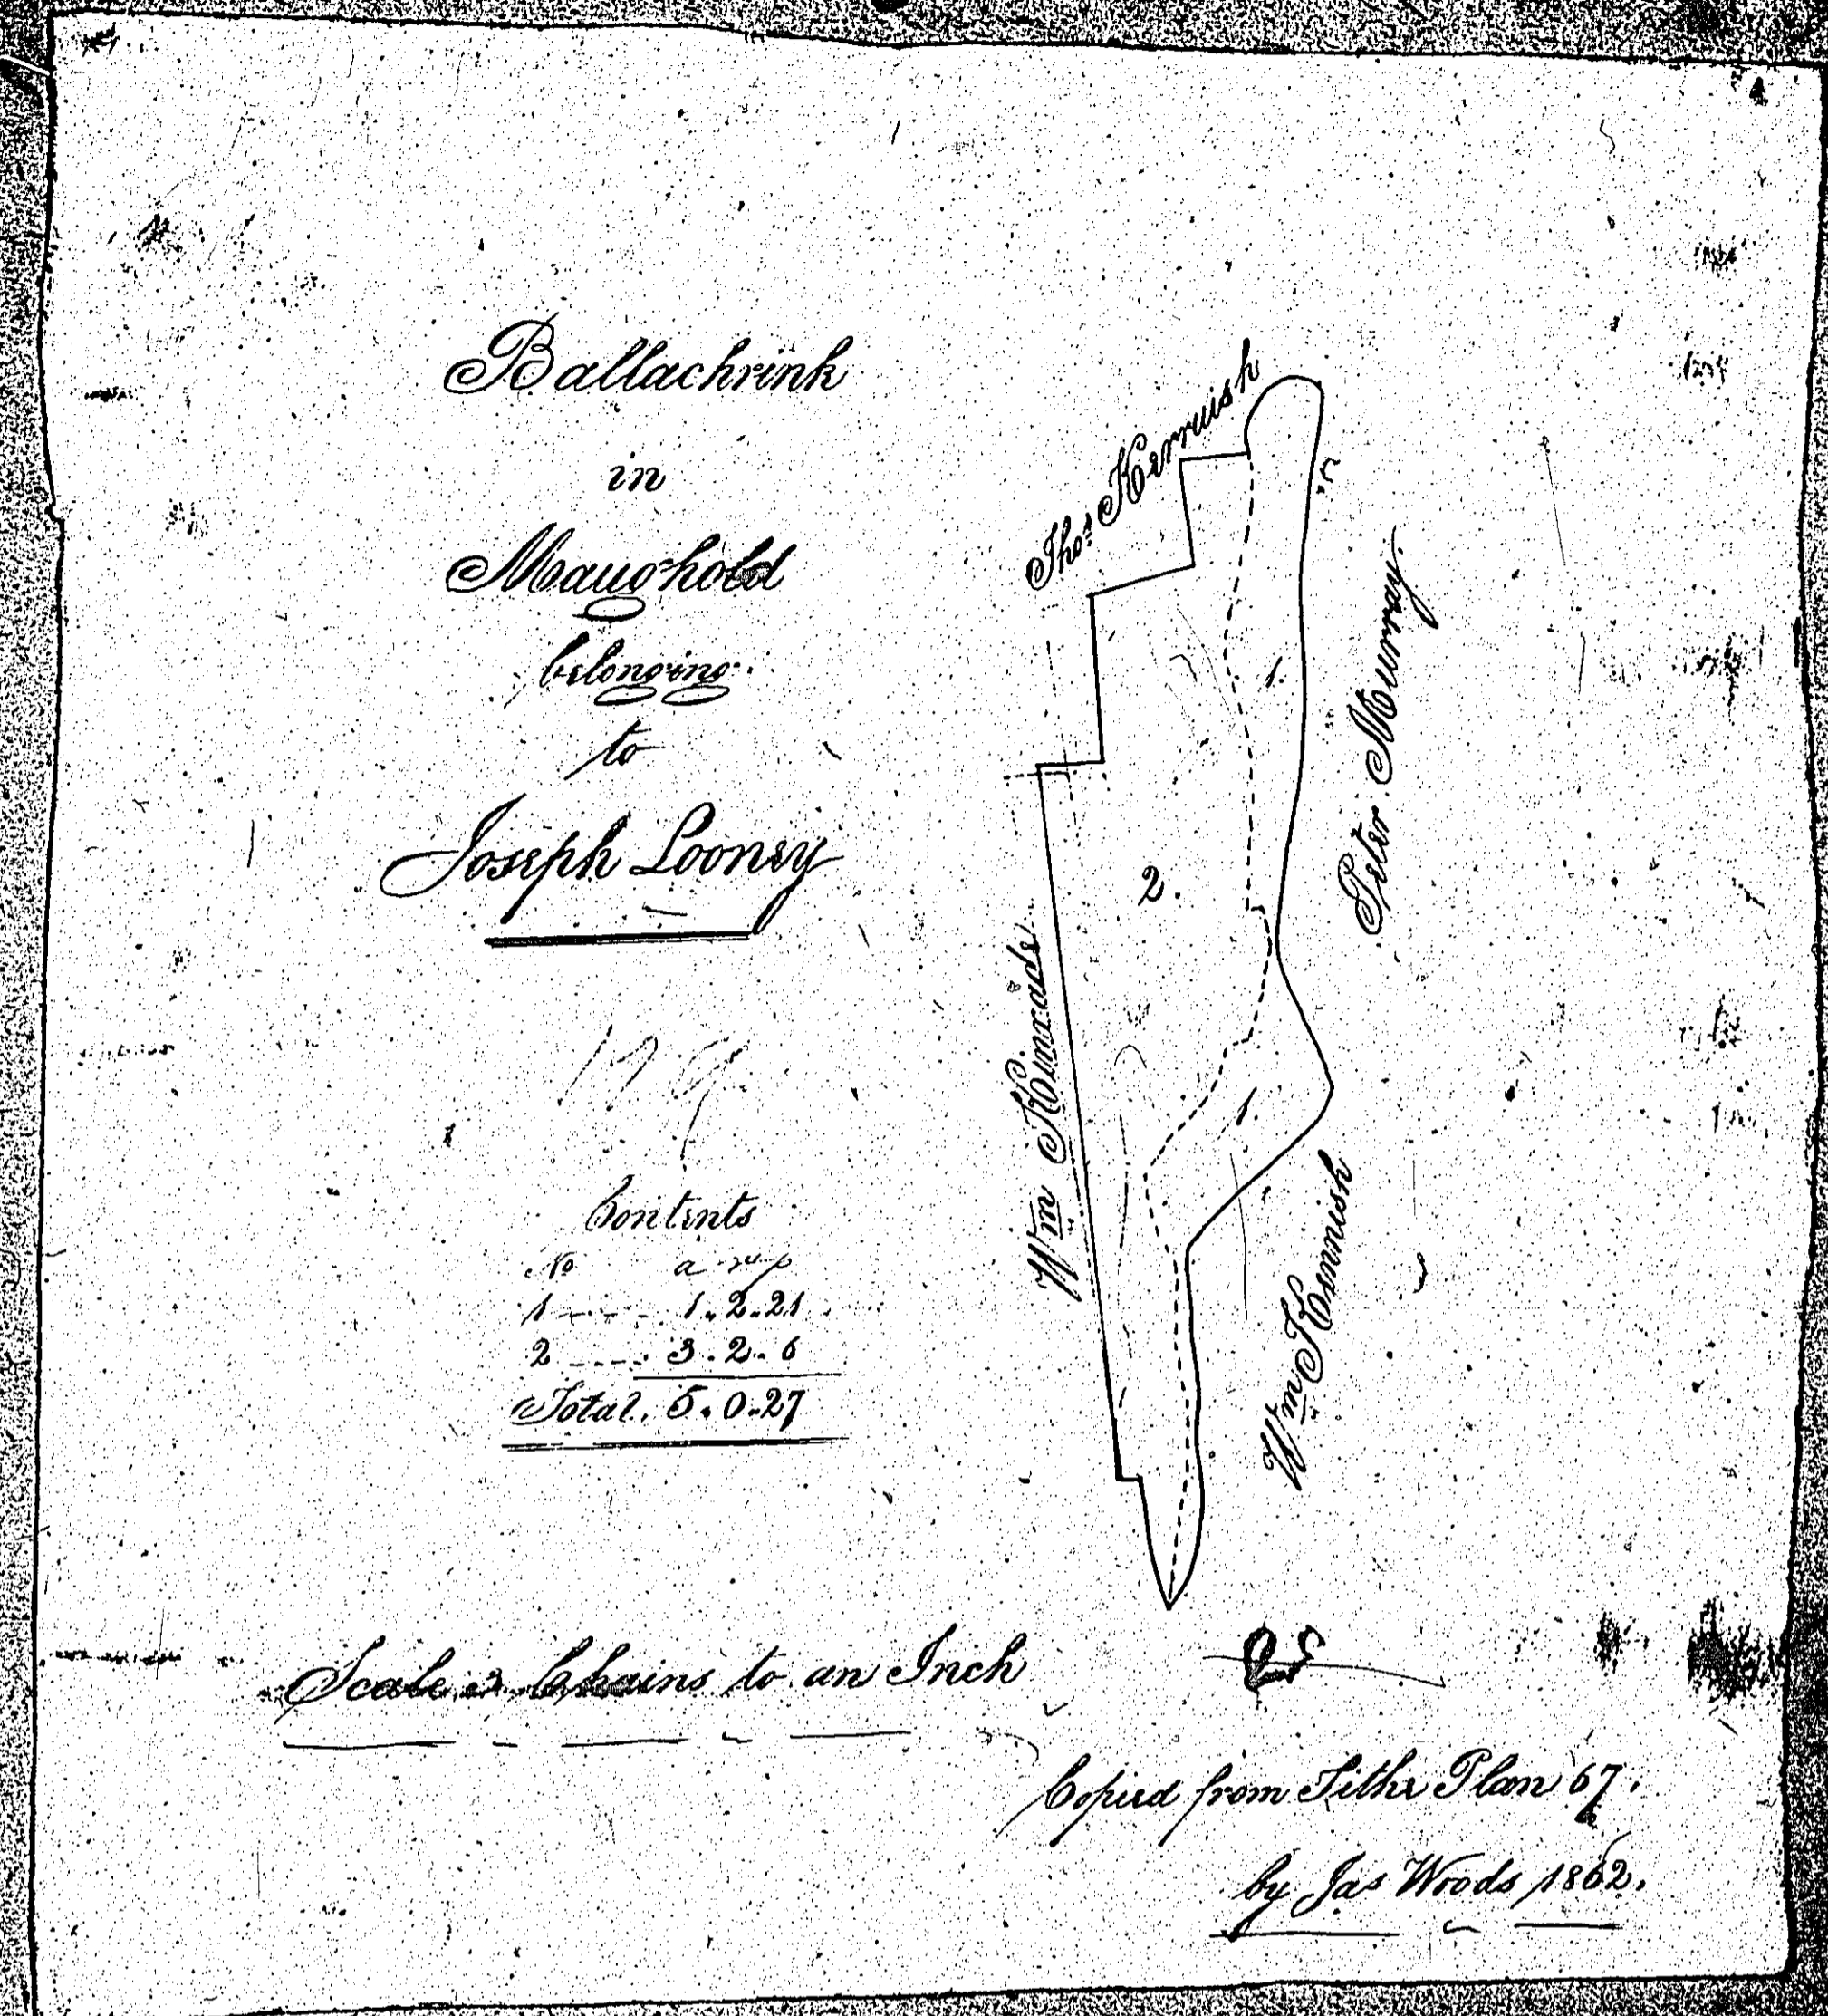 Ballachrink
in
Maughold
belonging
to
Joseph Looney
179
Contents
No a r p
1 ---- 1.2.21
2 ---- 3.2.6
Total. 5.0.27
Thos Kerruish
1.
Peter Murray
2.
Wm Kinrade
1.
Wm Kinnish
Scale 3 Chains to an Inch
Copied from Tithe Plan 67.
by Jas Woods 1862.